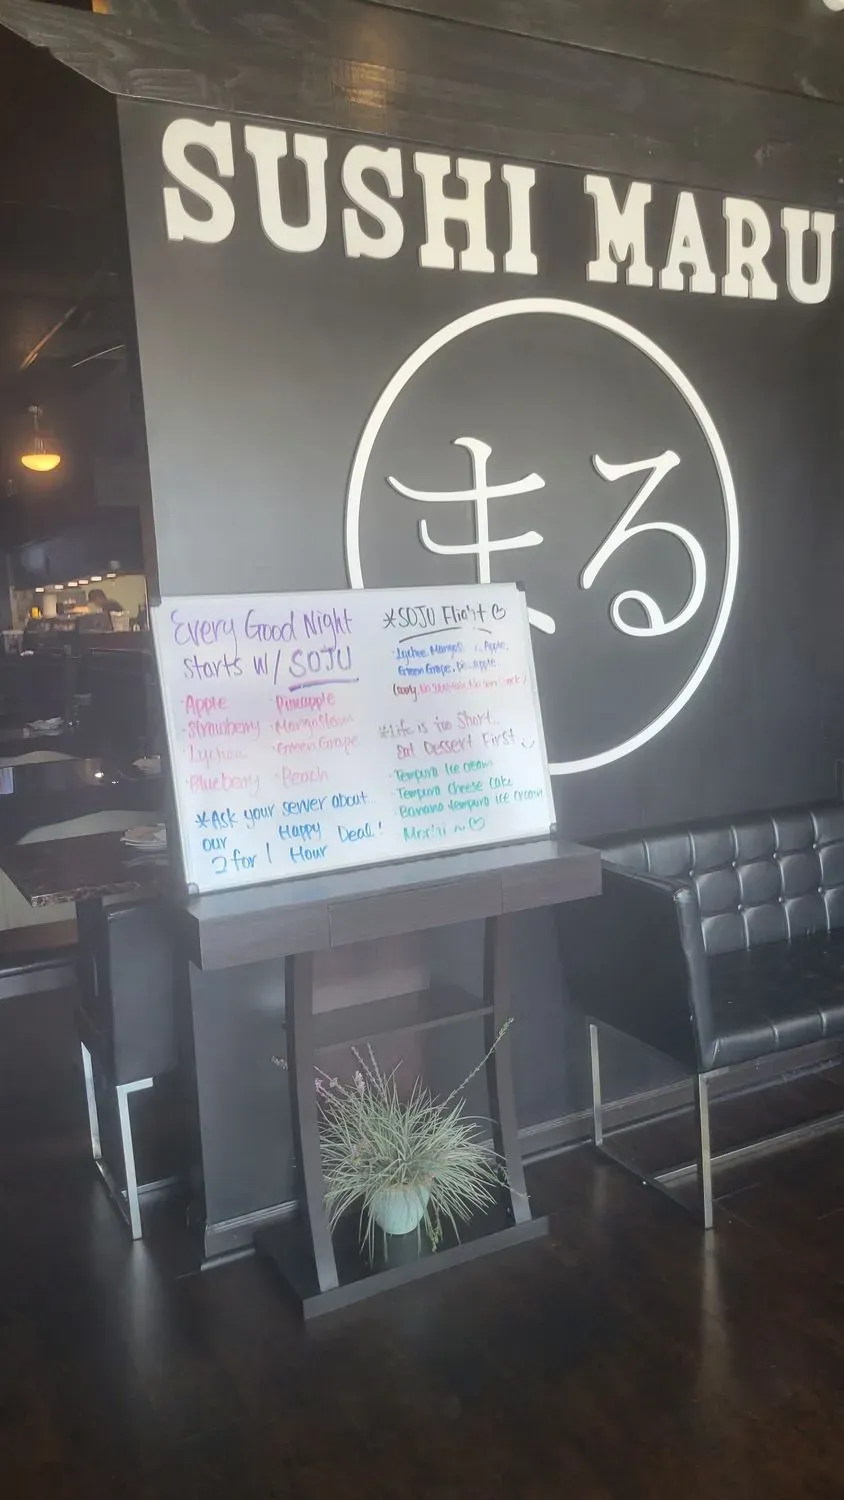 SUSHI MARU
まる
Every Good Night
starts w/ SOJU
·Apple ·Pineapple
·Strawberry ·Mangosteen
·Lychee ·Green Grape
·Blueberry ·Peach
*Ask your server about..
our Happy Deal!
2 for 1 Hour
*SOJU Flight
·Lychee, Apple,
Green Grape, pineapple
(sorry, No
*Life is too Short..
Eat Dessert First
·Tempura Ice cream
·Tempura cheese cake
·Banana tempura ice cream
Mochi ~